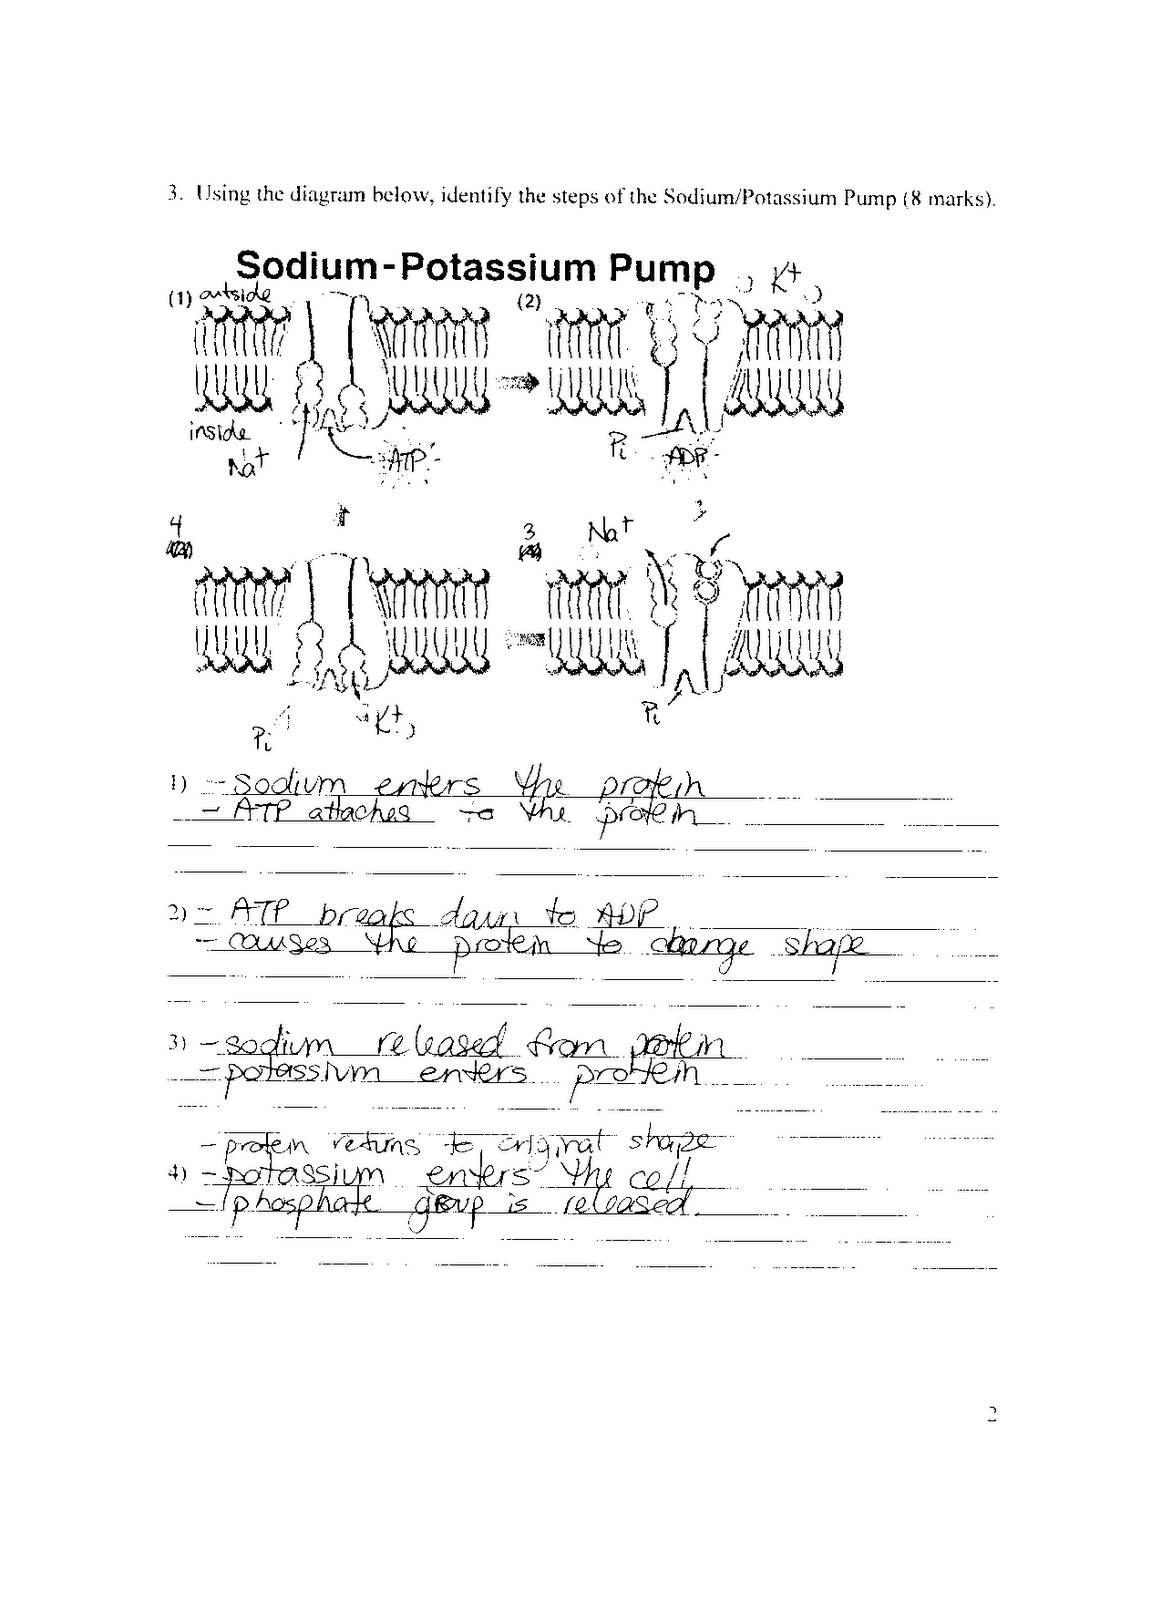 3. Using the diagram below, identify the steps of the Sodium/Potassium Pump (8 marks).
Sodium-Potassium Pump
K+
(1) outside
(2)
inside
Na+
ATP
Pi
ADP
4
3
Na+
Pi
K+
Pi
1) - sodium enters the protein
- ATP attaches to the protein
2) - ATP breaks down to ADP
- causes the protein to change shape
3) - sodium released from protein
- potassium enters protein
- protein returns to original shape
4) - potassium enters the cell
- phosphate group is released.
2